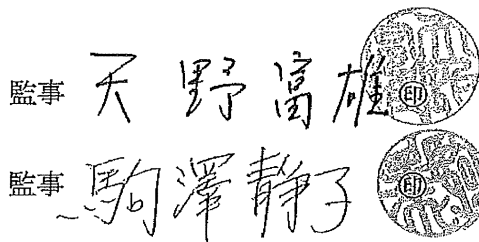 監事 天野富雄 ㊞
監事 駒澤静子 ㊞